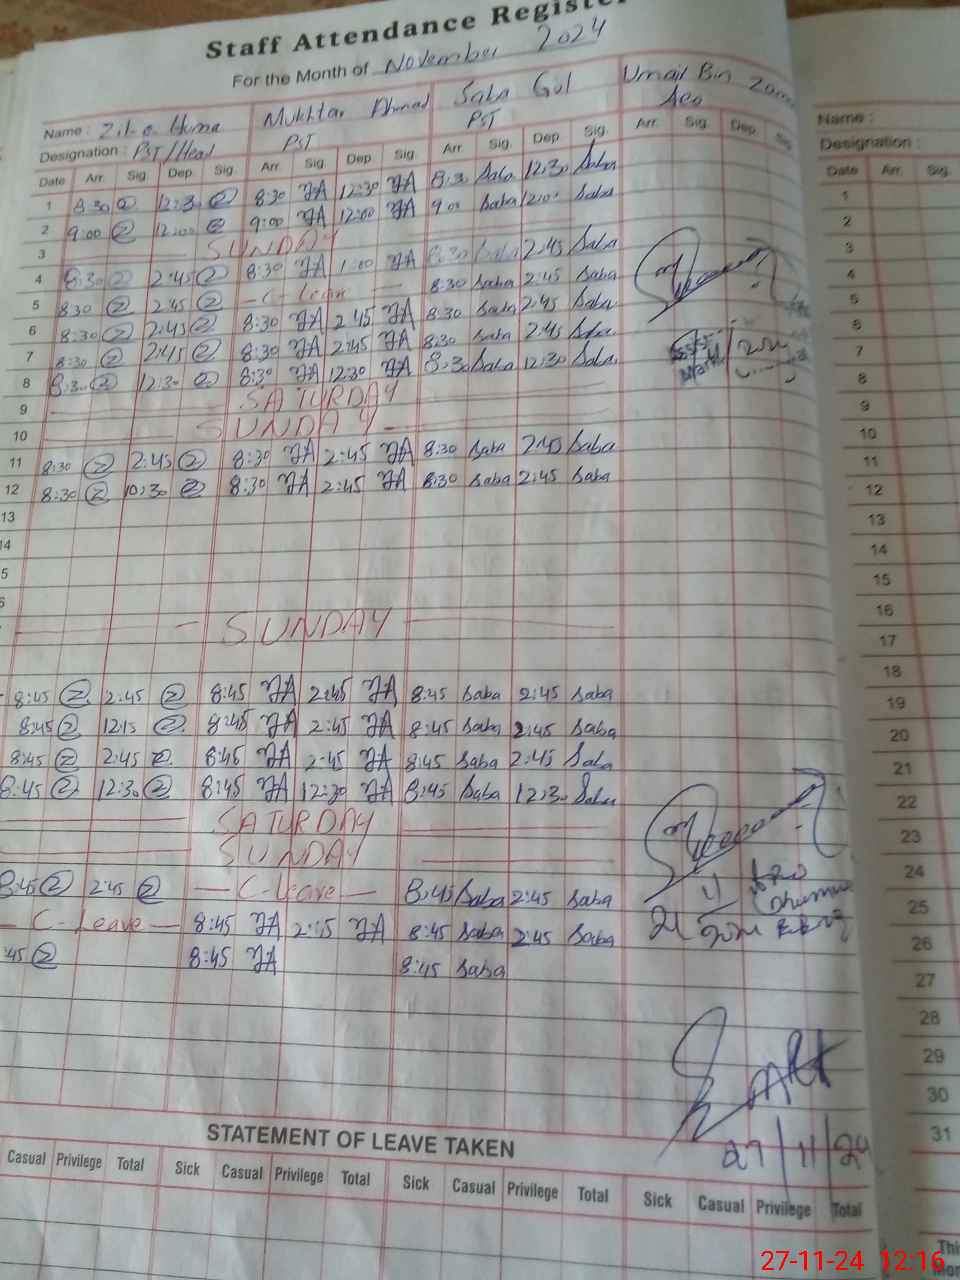 Staff Attendance Register
For the Month of November 2024
Name : Zil-e-Huma Mukhtar Ahmad Saba Gul Umair Bin
Designation : PST/Head PST PST Aeo
Date Arr. Sig. Dep. Sig. Arr. Sig. Dep. Sig. Arr. Sig. Dep. Sig. Arr. Sig. Dep. Sig.
1 8:30 12:30 8:30 12:30 8:30 Saba 12:30 Saba
2 9:00 12:00 9:00 12:00 9:00 Saba 12:00 Saba
3 SUNDAY
4 8:30 2:45 8:30 1:00 8:30 Saba 2:45 Saba
5 8:30 2:45 - C-Leave - 8:30 Saba 2:45 Saba
6 8:30 2:45 8:30 2:45 8:30 Saba 2:45 Saba
7 8:30 2:45 8:30 2:45 8:30 Saba 2:45 Saba
8 8:30 12:30 8:30 12:30 8:30 Saba 12:30 Saba
9 SATURDAY
10 SUNDAY
11 8:30 2:45 8:30 2:45 8:30 Saba 2:45 Saba
12 8:30 10:30 8:30 2:45 8:30 Saba 2:45 Saba
13
14
5
SUNDAY
8:45 2:45 8:45 2:45 8:45 Saba 2:45 Saba
8:45 12:15 8:45 2:45 8:45 Saba 2:45 Saba
8:45 2:45 8:45 2:45 8:45 Saba 2:45 Saba
8:45 12:30 8:45 12:30 8:45 Saba 12:30 Saba
SATURDAY
SUNDAY
8:45 2:45 - C-Leave - 8:45 Saba 2:45 Saba
- C-Leave - 8:45 2:45 8:45 Saba 2:45 Saba
:45 8:45 8:45 Saba
27/11/24
STATEMENT OF LEAVE TAKEN
Casual Privilege Total Sick Casual Privilege Total Sick Casual Privilege Total Sick Casual Privilege Total
Name :
Designation :
Date Arr. Sig.
1
2
3
4
5
6
7
8
9
10
11
12
13
14
15
16
17
18
19
20
21
22
23
24
25
26
27
28
29
30
31
27-11-24 12:16